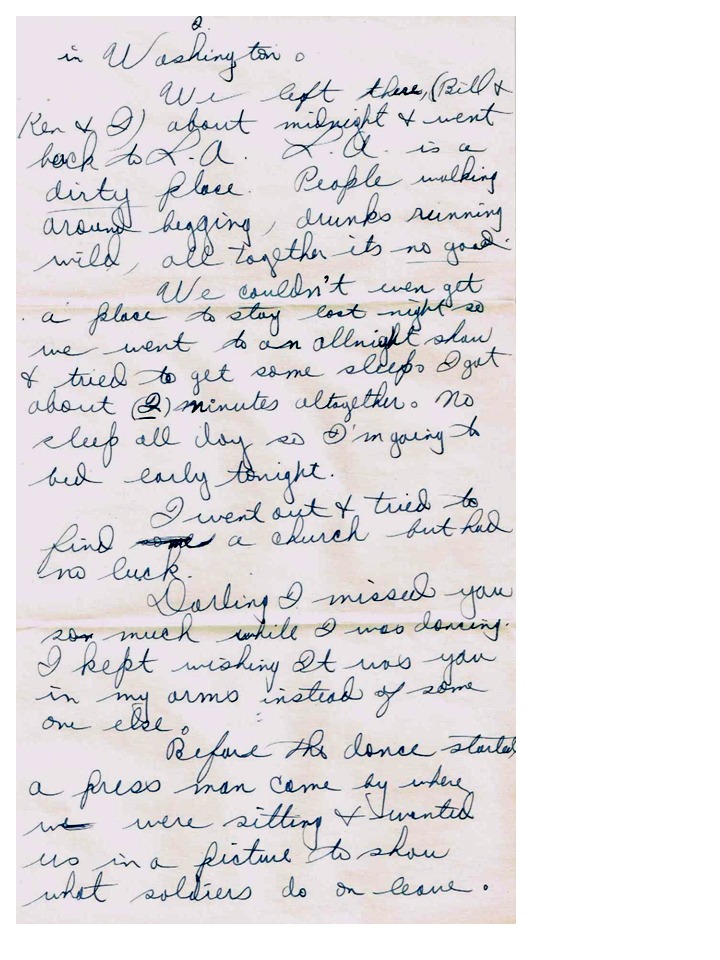 2
in Washington.
We left there, (Bill &
Ken & I) about midnight & went
back to L.A. L.A. is a
dirty place. People walking
around begging, drunks running
wild, all together its no good.
We couldn't even get
a place to stay last night so
we went to an allnight show
& tried to get some sleep. I got
about (2) minutes altogether. No
sleep all day so I'm going to
bed early tonight.
I went out & tried to
find some a church but had
no luck.
Darling I missed you
so much while I was dancing.
I kept wishing It was you
in my arms instead of some
one else.
Before the dance started
a press man came by where
we were sitting & wanted
us in a picture to show
what soldiers do on leave.